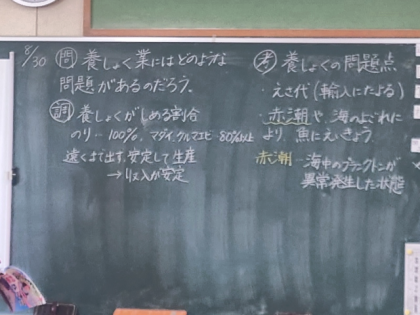 8/30
問 養しょく業にはどのような
問題があるのだろう。
調 養しょくがしめる割合
のり－100%. マダイ、クルマエビ 80%以上
遠くまで出ず、安定して生産
→収入が安定
考 養しょくの問題点
・えさ代(輸入にたよる)
・赤潮や、海のよごれに
より、魚にえきょう
赤潮－海中のプランクトンが
異常発生した状態